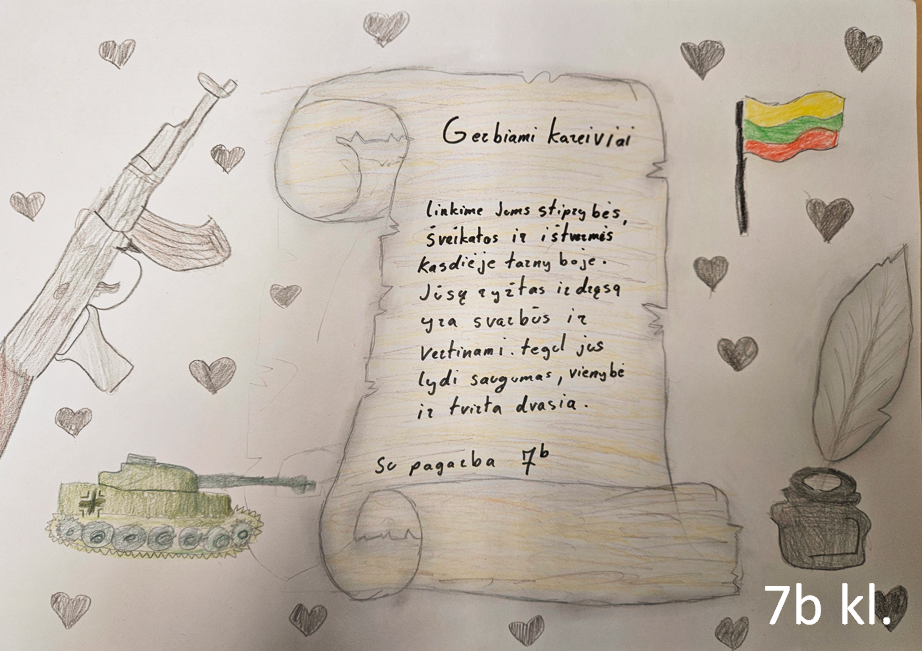 Gerbiami kareiviai
linkime Jums stiprybės,
šveikatos ir ištvermės
kasdieje tarnyboje.
Jūsų ryžtas ir drąsa
yra svarbūs ir
vertinami. tegul jus
lydi saugumas, vienybė
ir tvirta dvasia.
Su pagarba 7b
7b kl.